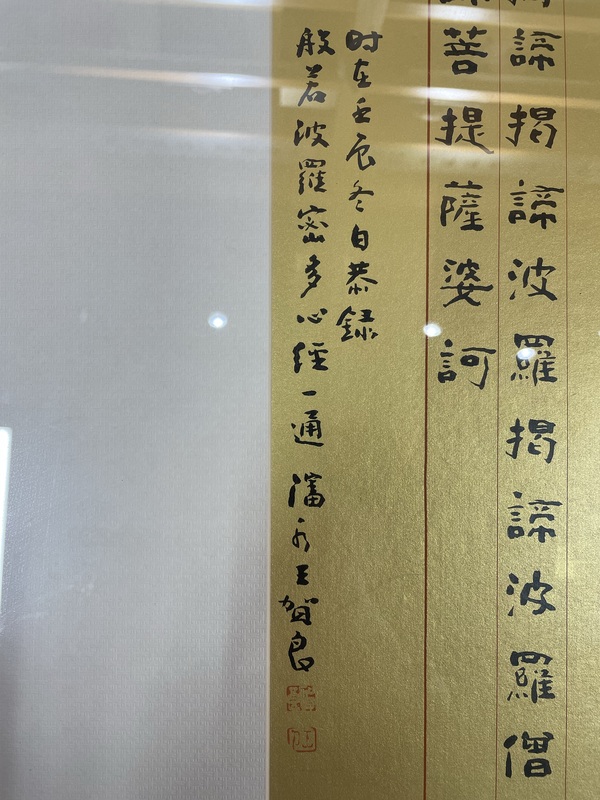 揭諦揭諦波羅揭諦波羅僧
諦菩提薩婆訶
时在壬辰冬日恭録
般若波羅密多心經一通 瀋水王賀良